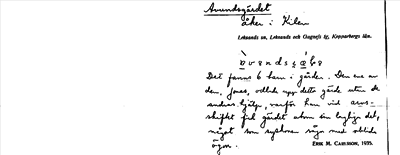 Avundsgärdet
åker i Kilen
Leksands sn, Leksands och Gagnefs tg, Kopparbergs län.
avundsgäḷe
Det fanns 6 barn i gården. Den ene av
dem, Jonas, odlade upp detta gärde utan de
andras hjälp, varför han vid arvs-
skiftet fick gärdet utom sin lagliga del,
något som syskonen sågo med oblida
ögon.
ERIK M. CARLSSON, 1935.